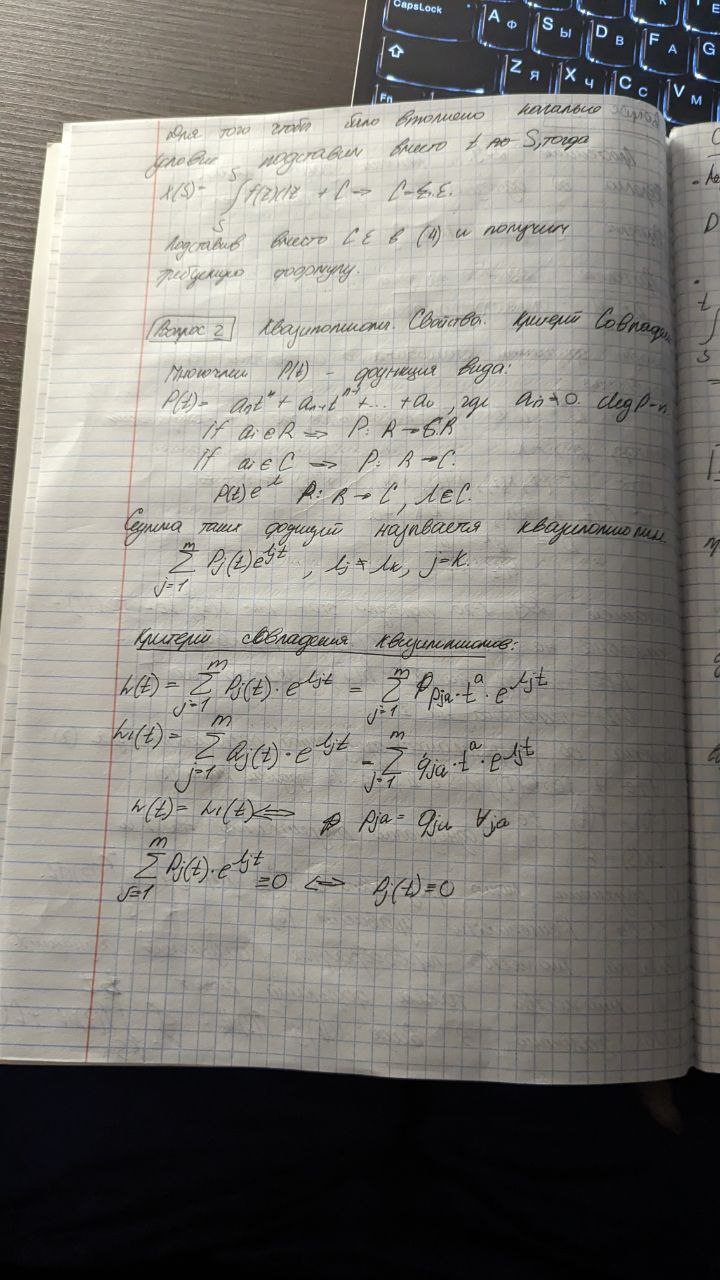 CapsLock
А Ф
S Ы
D В
F А
G
Z Я
X Ч
C С
V М
Fn
Для того чтобы было выполнено начальное
условие подставим вместо t → S, тогда
x(S) = ∫ f(τ)dτ + C → C = ξ.
S
S
Подставив вместо C ξ в (4) и получим
требуемую формулу.
Вопрос 2 Квазиполином. Свойства. Критерий Совпаден
Многочлен P(t) - функция вида:
P(t) = aₙtⁿ + aₙ₋₁tⁿ⁻¹ + ... + a₀, где aₙ ≠ 0. deg P = n
If aᵢ ∈ R ⇒ P: R → R
If aᵢ ∈ C ⇒ P: R → C.
P(t)eᵗ P: R → C, λ ∈ C.
Сумма таких функций называется квазиполином.
m
∑ Pj(t)e^λjt , λj ≠ λk, j = k.
j=1
Критерий совпадения квазиполиномов:
L(t) = ∑ᵐⱼ₌₁ Pj(t) · e^λjt = ∑ᵐⱼ₌₁ pja · tᵃ · e^λjt
L1(t) = ∑ᵐⱼ₌₁ Qj(t) · e^λjt = ∑ᵐⱼ₌₁ qja · tᵃ · e^λjt
L(t) = L1(t) ⇔ pja = qja ∀ja
∑ᵐⱼ₌₁ Pj(t) · e^λjt ≡ 0 ⇔ Pj(t) ≡ 0